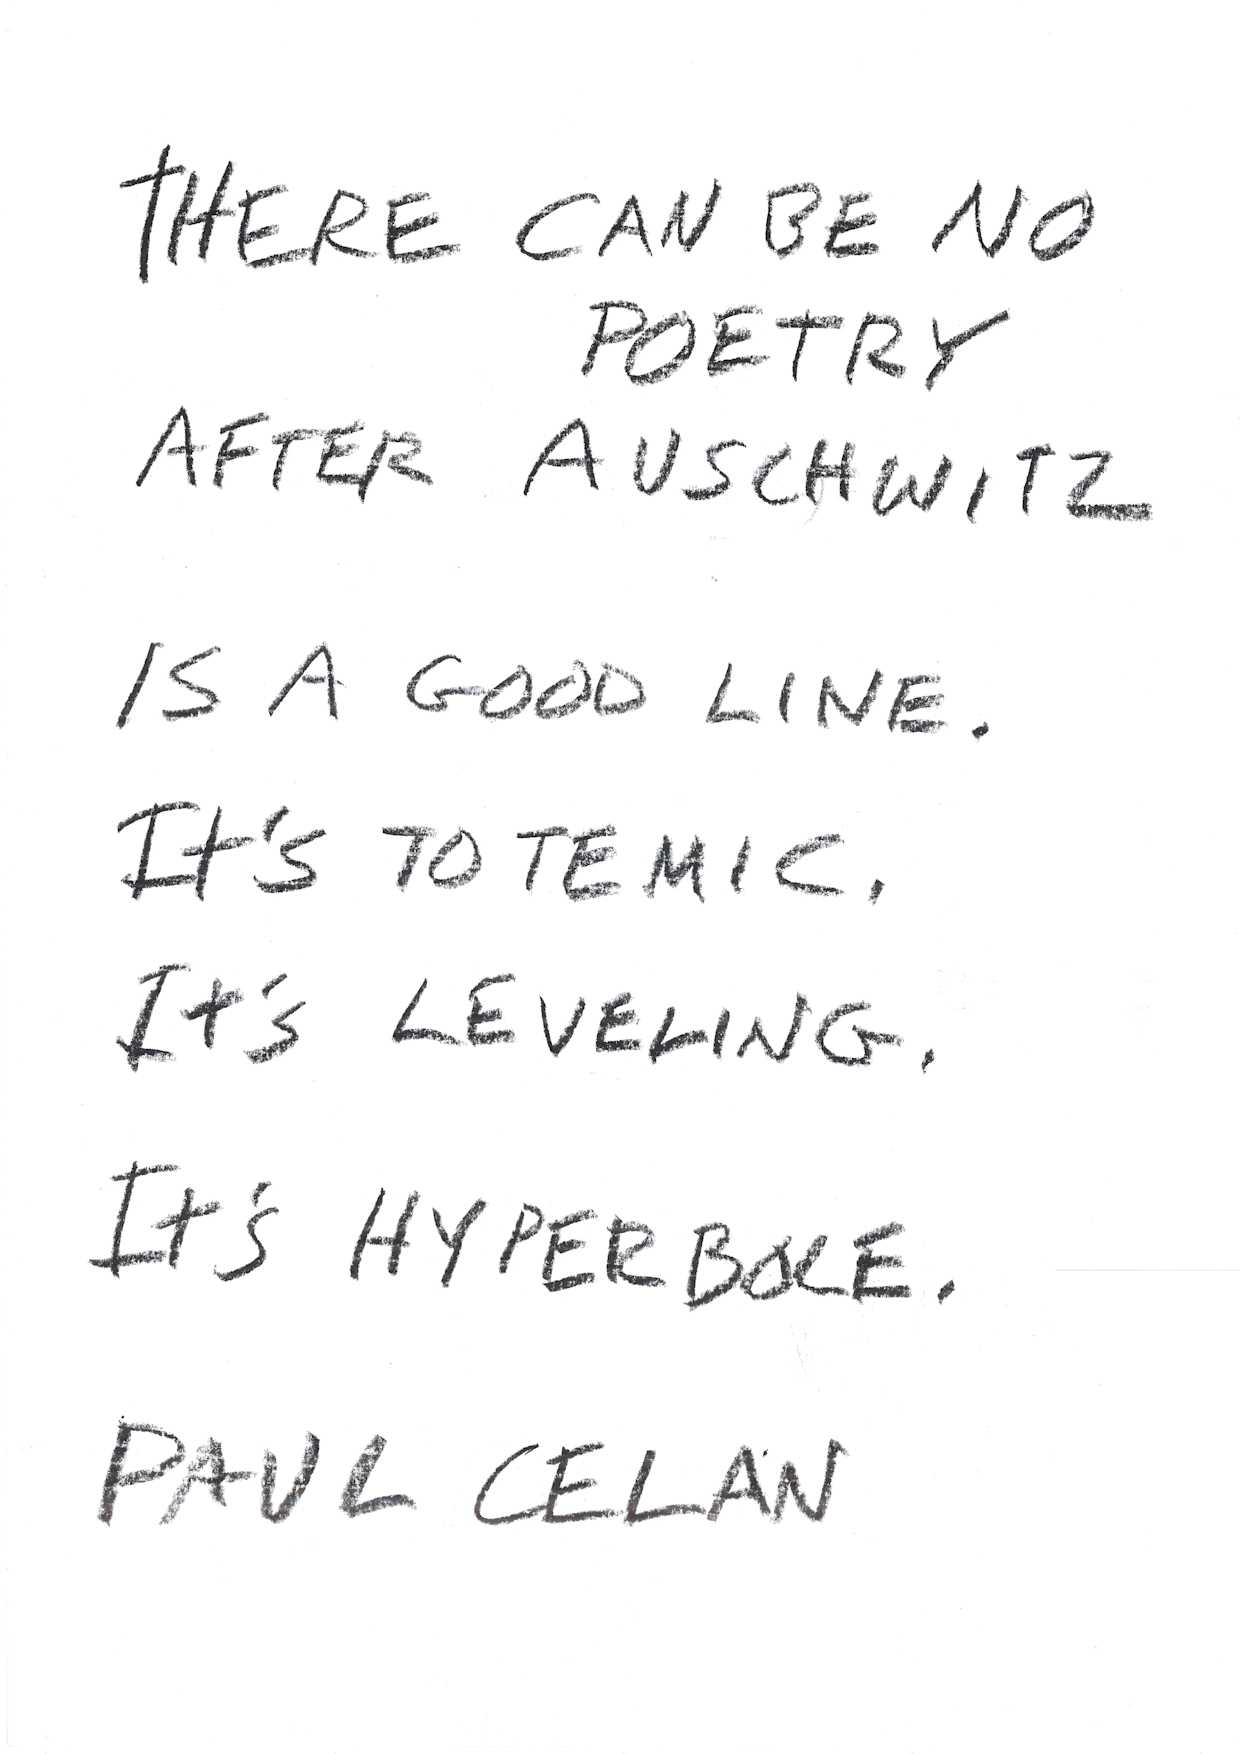 THERE CAN BE NO
POETRY
AFTER AUSCHWITZ
IS A GOOD LINE.
It's TOTEMIC.
It's LEVELING.
It's HYPERBOLE.
PAUL CELAN